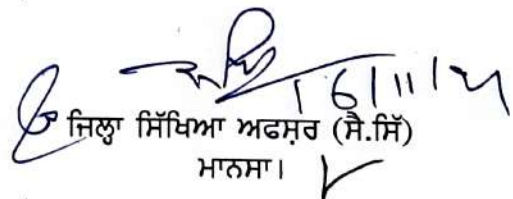 16/11/21
ਜਿਲ੍ਹਾ ਸਿੱਖਿਆ ਅਫਸ਼ਰ (ਸੈ.ਸਿੱ)
ਮਾਨਸਾ।